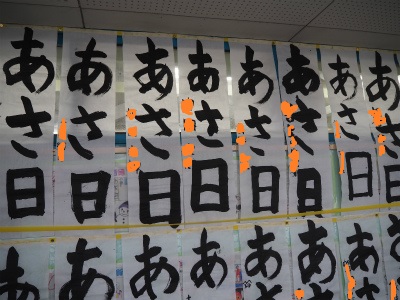 あさ日
あさ日
あさ日
あさ日
あさ日
あさ日
あさ日
あさ日
あ
あ
あ
あ
あさ
あさ
あさ
あ